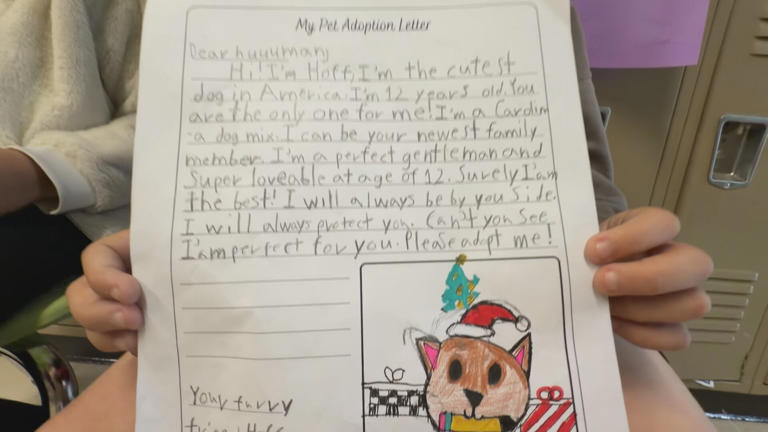 My Pet Adoption Letter
Dear huuuman,
Hi! I'm Hoff, I'm the cutest
dog in America. I'm 12 years old. You
are the only one for me! I'm a Cardin
a dog mix. I can be your newest family
member. I'm a perfect gentleman and
Super loveable at age of 12. Surely I'am
the best! I will always be by you side.
I will always protect you. Can't you See
I'am perfect for you. Please adopt me!
Your furry